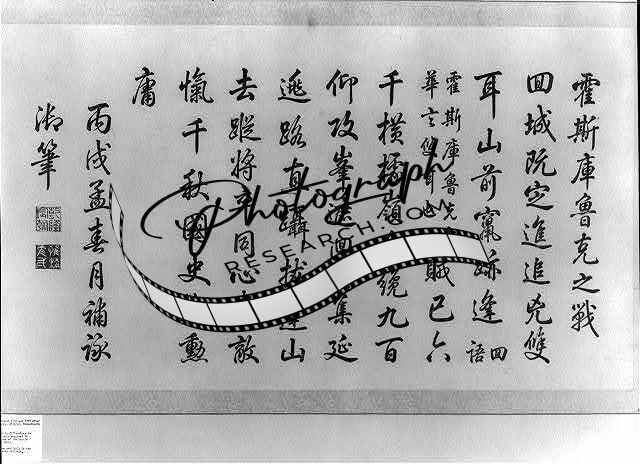 霍斯庫魯克之戰
回城既定進追兇雙
耳山前竄跡逢回語
霍斯庫魯克
華言雙耳也賊已六
千橫據嶺我纔九百
仰攻峯集延
逃路直躡拔達山
去蹤將同心敵
愾千秋國史勳
庸
丙戌孟春月補詠
御筆
Photograph
RESEARCH.COM